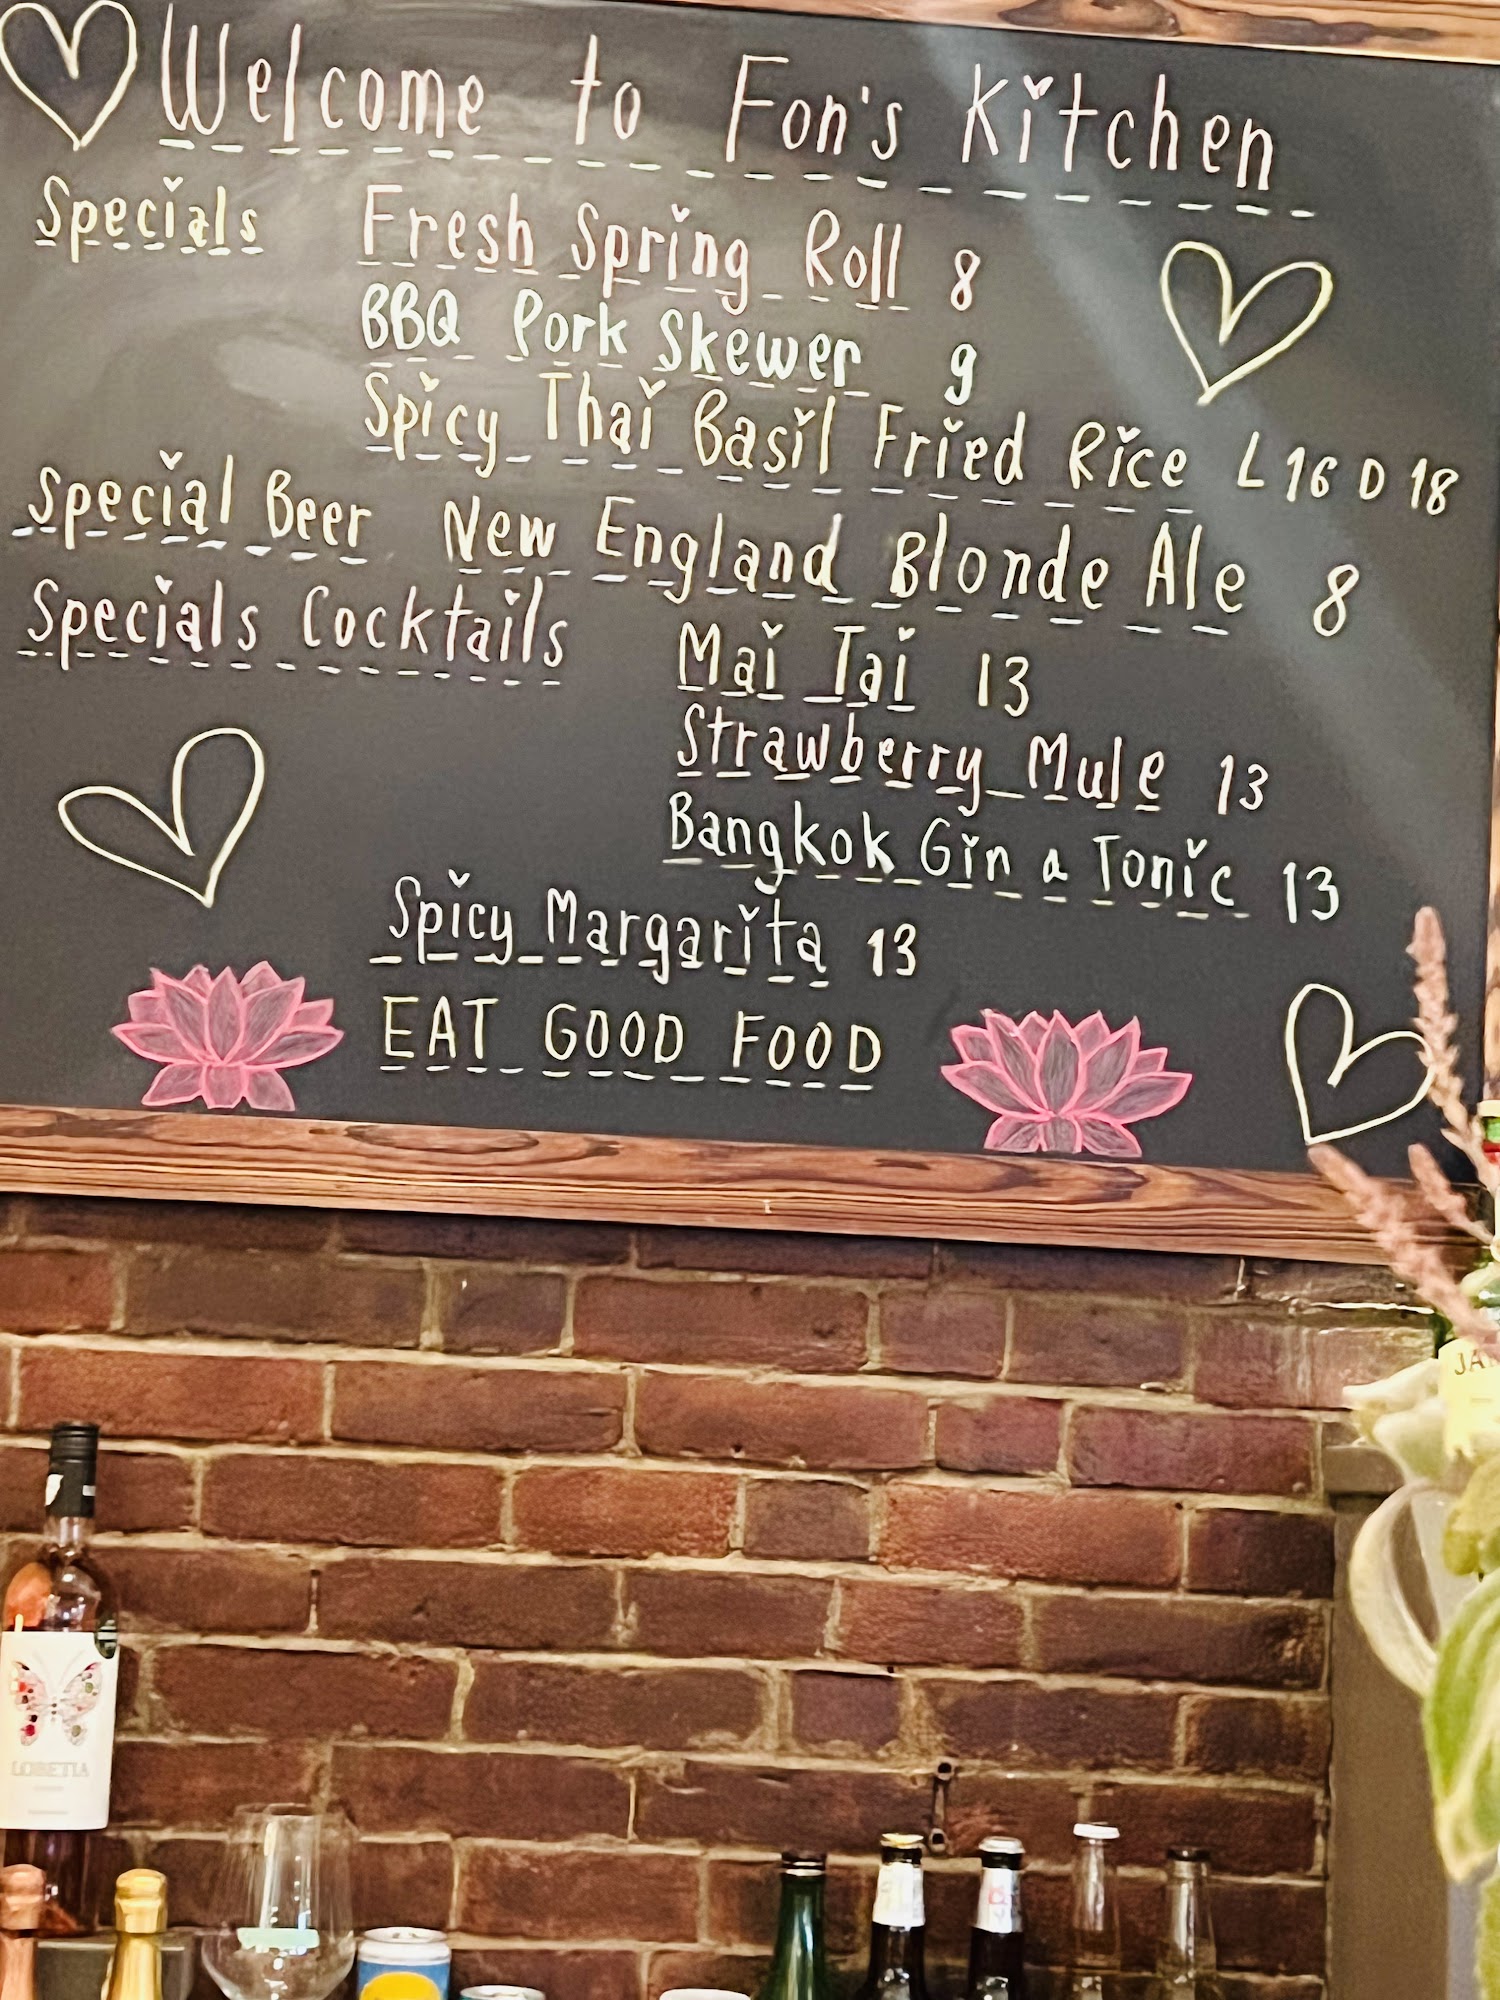 Welcome to Fon's Kitchen
Specials Fresh Spring Roll 8
BBQ Pork Skewer 9
Spicy Thai Basil Fried Rice L 16 D 18
Special Beer New England Blonde Ale 8
Specials Cocktails Mai Tai 13
Strawberry Mule 13
Bangkok Gin a Tonic 13
Spicy Margarita 13
EAT GOOD FOOD
JA
LOBETIA